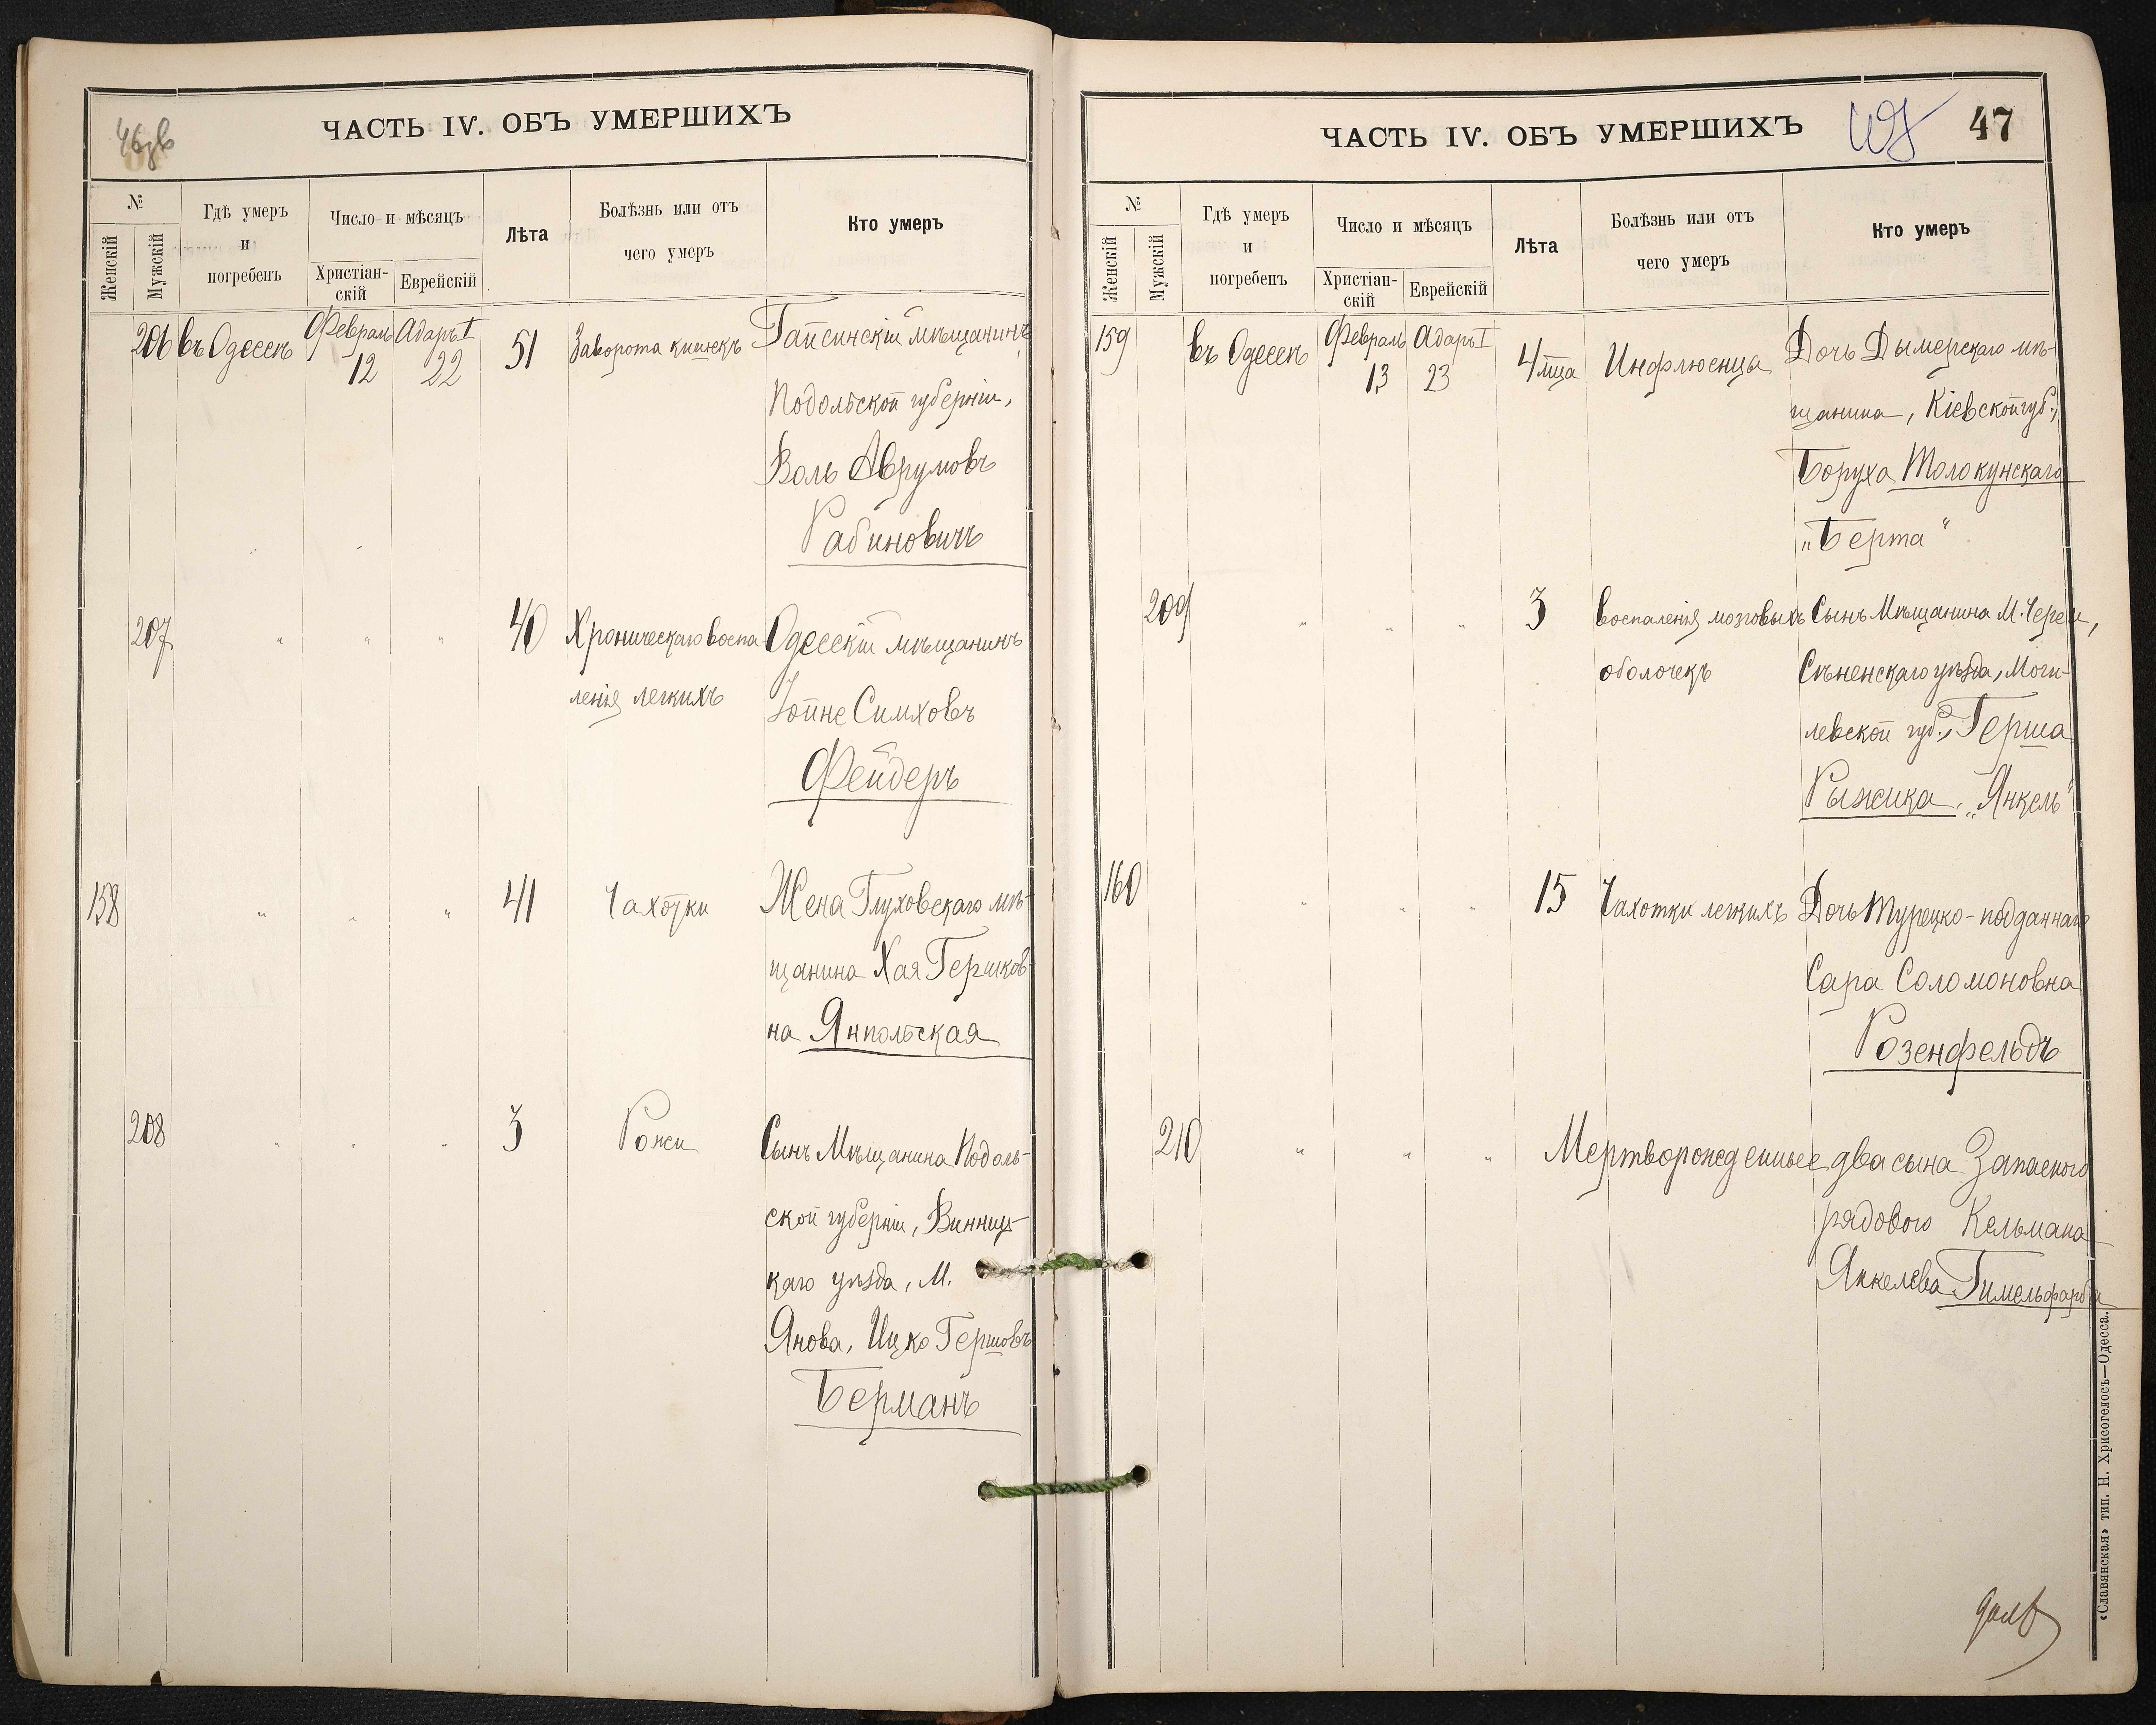 46 зв
ЧАСТЬ IV. ОБЪ УМЕРШИХЪ
№
Женскій
Мужскій
Гдѣ умеръ
и
погребенъ
Число и мѣсяцъ
Христіан-
скій
Еврейскій
Лѣта
Болѣзнь или отъ
чего умеръ
Кто умеръ
206 въ Одессѣ Февраль Адаръ I 51 Заворота кишекъ Гайсинскій мѣщанинъ
12 22
Подольской губерніи,
Воль Аврумовъ
Рабиновичъ
207 " " " 40 Хроническаго воспа Одесскій мѣщанинъ
ленія легкихъ Іойне Симховъ
Фейдеръ
158 " " " 41 Чахотки Жена Глуховскаго мѣ-
щанина Хая Гершков-
на Янпольская
208 " " " 3 Рожи Сынъ Мѣщанина Подоль-
ской губерніи, Винниц-
каго уѣзда, М.
Янова, Ицко Гершовъ
Берманъ
ЧАСТЬ IV. ОБЪ УМЕРШИХЪ
47
№
Женскій
Мужскій
Гдѣ умеръ
и
погребенъ
Число и мѣсяцъ
Христіан-
скій
Еврейскій
Лѣта
Болѣзнь или отъ
чего умеръ
Кто умеръ
159 въ Одессѣ Февраль Адаръ I 4 мца Инфлюенца Дочь Дымерскаго мѣ-
13 23
щанина, Кіевской губ.,
Боруха Толокунскаго
„Берта“
209 " " " 3 воспаленія мозговыхъ Сынъ Мѣщанина М. Череи,
оболочекъ Сѣненскаго уѣзда, Моги-
левской губ., Герша
Рыжика, „Янкель“
160 " " " 15 Чахотки легкихъ Дочь Турецко-подданнаго
Сара Соломоновна
Розенфельдъ
210 " " " Мертворожденные два сына Запасного
рядового Кельмана
Янкелева Гимельфарба
«Славянская» тип. Н. Хрисогелосъ—Одесса.